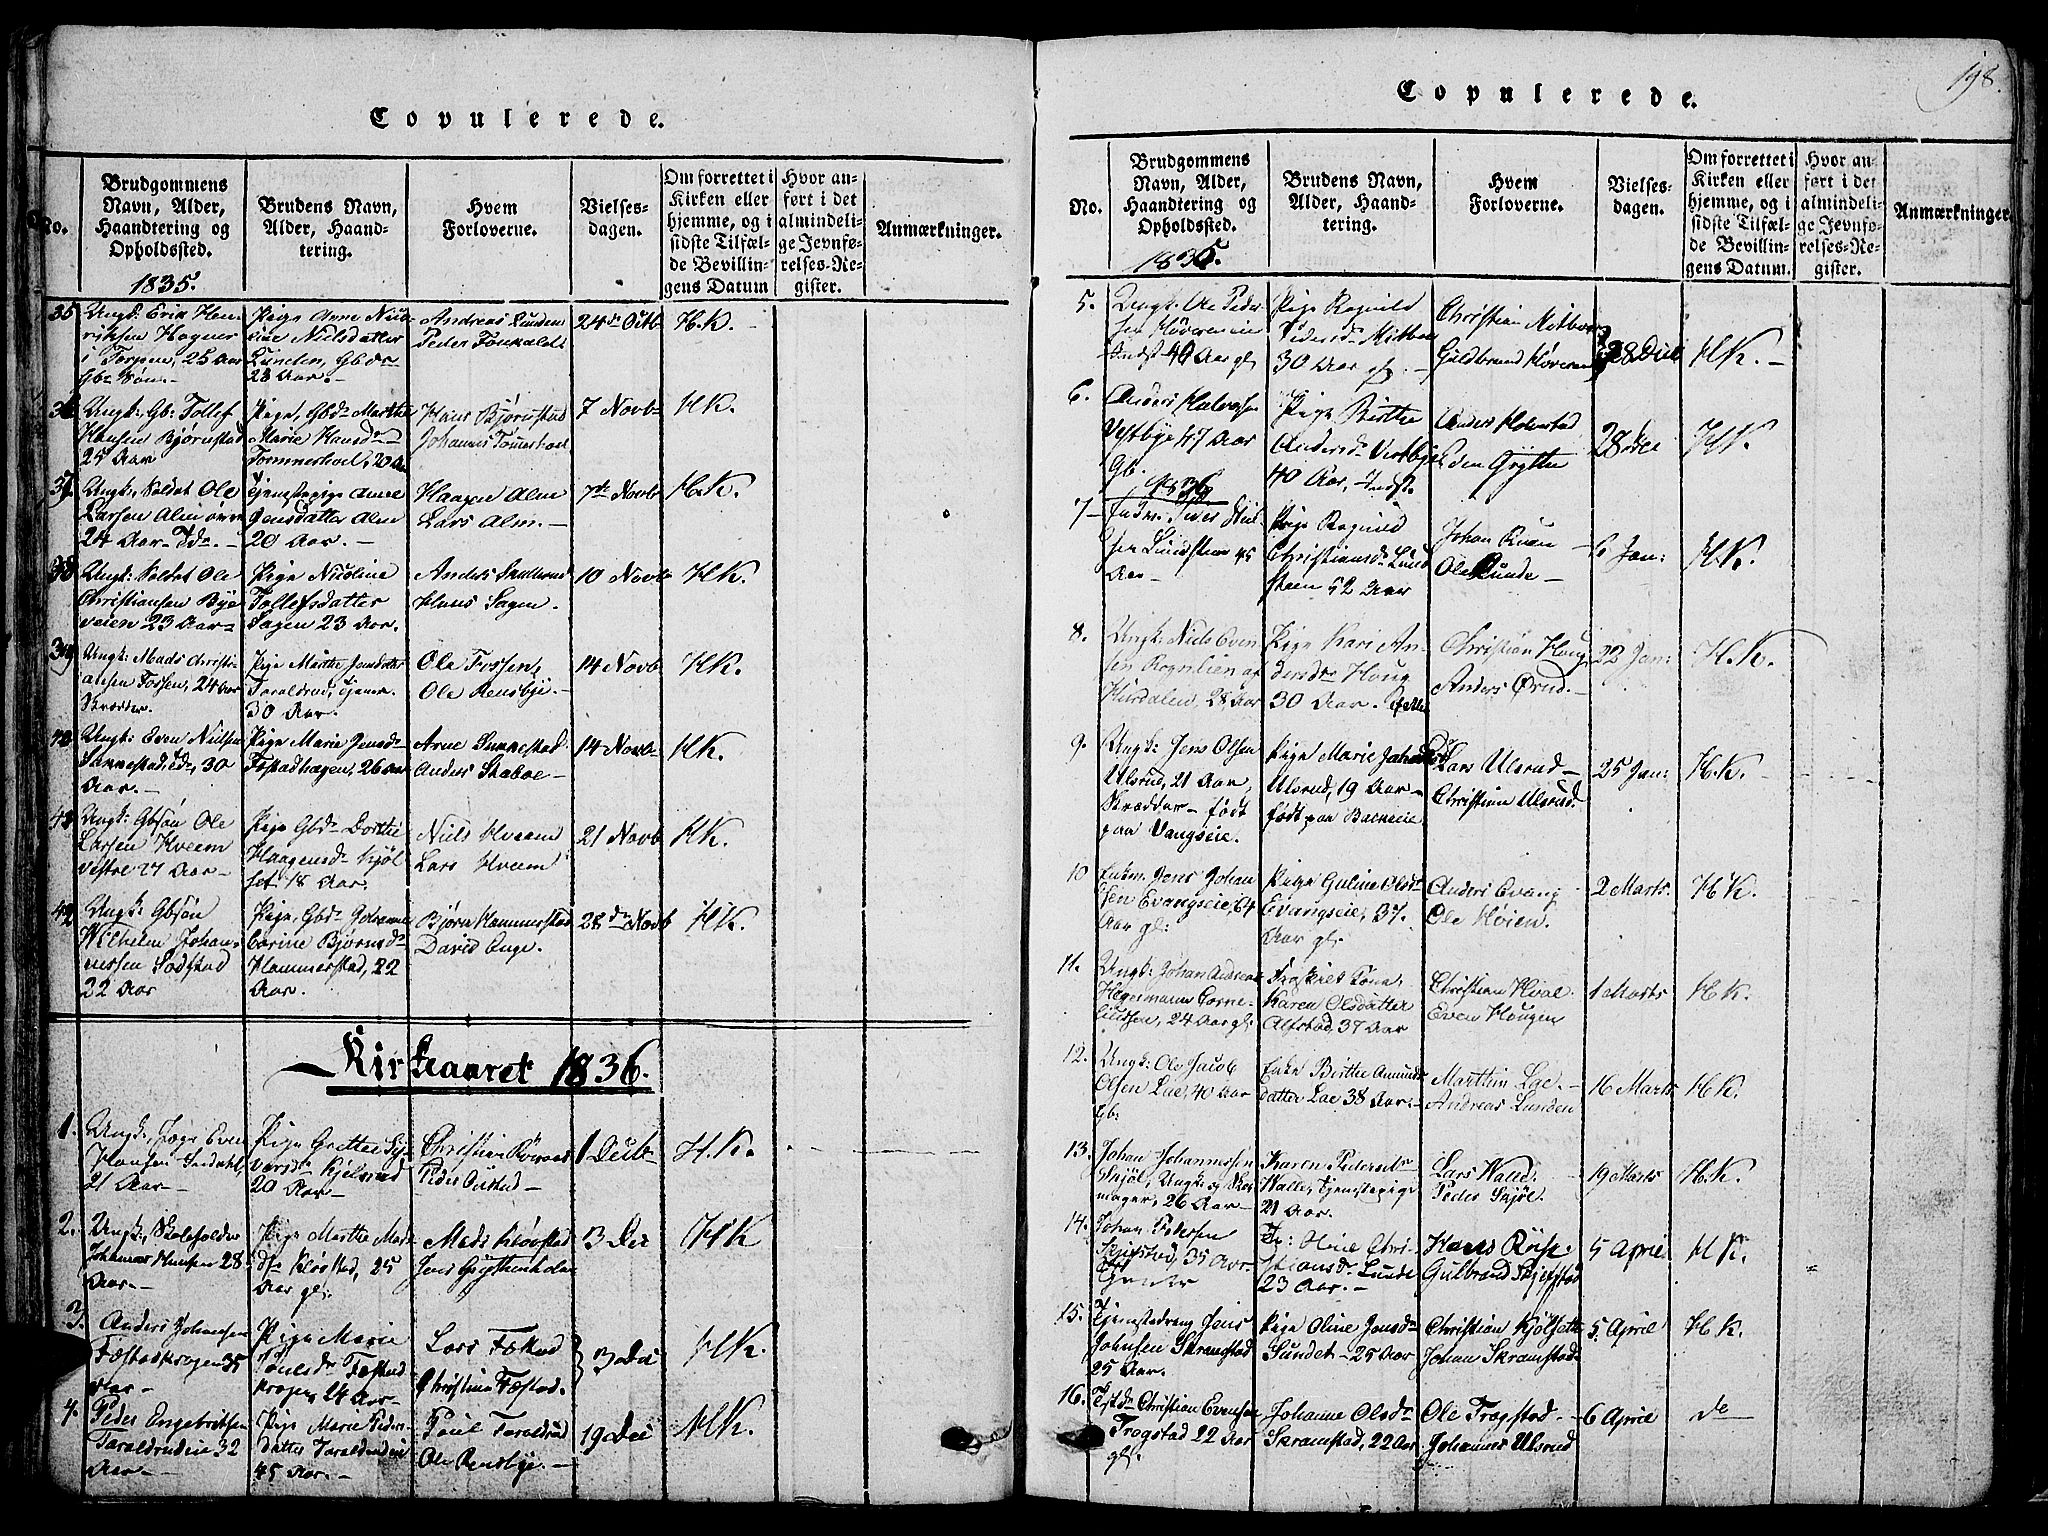 Copulerede.
No.
Brudgommens
Navn, Alder,
Haandtering og
Opholdssted.
1835.
Brudens Navn,
Alder, Haand-
tering.
Hvem
Forloverne.
Vielses-
dagen.
Om forrettet i
Kirken eller
hjemme, og i
sidste Tilfæl-
de Bevillin-
gens Datum
Hvor an-
ført i det
almindeli-
ge Jevnfø-
relses-Re-
gister.
Anmærkninger.
35
Ungk: Erik Hen-
riksen Hogner
i Torpen, 25 Aar
Gb: Søn.-
Pige Anne Nico-
line Nielsdatter
Lunden, Gbdr
28 Aar.-
Andreas Lunden
Peder
24de Octb
H.K.
36
Ungk:, Gb: Tollef
Hansen Bjørnstad
25 Aar
Pige, Gbdr Marthe
Marie Hansdr
Tommerhoel, 20 Aar
Hans Bjørnstad
Johannes Tommerhoel
7 Novbr
HK.
37.
Ungk:, Soldat Ole
Larsen Alm øvre
24 Aar- Idr.-
Tjenestepige Anne
Jensdatter Alm
20 Aar.-
Haagen Alm
Lars Alm.-
7de Novbr
H.K.
38
Ungk: Soldat Ole
Christiansen Bye
veien 23 Aar-
Pige Nicoline
Tollefsdatter
Sagen 23 Aar.
Anders
Hans Sagen.
10 Novb
HK.
39
Ungk: Mads Christi-
ansen Fossen, 24 Aar
Skrædder.
Pige Marthe Jensdatter
Taraldrud, tjener.
30 Aar.
Ole Fossen,
Ole Rensbye.-
14 Novb
HK.
40
Ungk: Even Nielsen
Sannestad, Idr, 30
Aar.-
Pige Marie Jensdr
Fæstadhagen, 26 Aar
Arne Sannestad
Anders Skaboe-
14 Novbr
HK.
41
Ungk: Gbsøn Ole
Larsen Hveem
vestre 27 Aar-
Pige Gbdr Dorthe
Haagensdr Kjøl
set 18 Aar.
Niels Hveem
Lars Hveem
21 Novb
HK.
42
Ungk: Gbsøn
Wilhelm Johan-
nessen Sodstad
22 Aar
Pige, Gbdr Johanne
Carine Bjørnsdr
Hammerstad, 22
Aar.
Bjørn Hammerstad
David Enge.
28de Novb
HK.
Kirkeaaret 1836.
1.
Ungk:, Jæge Even
Hansen
21 Aar-
Pige Grethe Sy-
versdr Kjelsrud
20 Aar-
Christian
Peder
1 Decbr
H.K.
2.
Ungk:, Skoleholder
Johannes Hansen 28
Aar.-
Pige Marthe Mads
dr Kløvstad, 25
Aar gl.
Mads Kløvstad
Jens Grythenholen
3 Dec
HK
3.
Anders Johansen
Fæstadkragen 35
Aar-
Pige Marie
Poulsdr Fæstad
kragen 24 Aar-
Lars Fæstad
Christian Fæstad.
3 Dec
HK.
4.
Peder Engebretsen
Taraldrudeie 32
Aar-
Pige Marie Peder-
datter Taraldrudeie
45 Aar.-
Poul Taraldrud
Ole Rensbye.-
19 Dec
HK.
198.
Copulerede.
No.
Brudgommens
Navn, Alder,
Haandtering og
Opholdssted.
1835.
Brudens Navn,
Alder, Haand-
tering.
Hvem
Forloverne.
Vielses-
dagen.
Om forrettet i
Kirken eller
hjemme, og i
sidste Tilfæl-
de Bevillin-
gens Datum.
Hvor an-
ført i det
almindeli-
ge Jevnfø-
relses-Re-
gister.
Anmærkninger.
5.
Ungk: Ole Peder-
sen Høverenseie
Indst 40 Aar gl.
Pige Ragnild
Pedersdr
30 Aar gl.-
Christian
Guldbrand Høveren
28 Dec
HK.-
6.
Anders Halvorsen
Vestbye 47 Aar
Gb.
Pige Birthe
Andersdr Vestbye
40 Aar, Indst.
Anders Holmstad
Eden Grythe
28 Dec
HK
1836
7-
Enkm. Peder Niel-
sen Lundsteen 45
Aar-
Pige Ragnild
Christiansdr Lund
steen 52 Aar
Johan
Ole Lunde-
6 Jan:
HK.
8.
Ungk: Niels Even-
sen Rognlien af
Hurdalen, 28 Aar
Pige Kari An-
dersdr Houg
30 Aar.
Christian Houg
Anders Ørud.-
22 Jan:
H.K.
9.
Ungk: Jens Olsen
Ulsrud, 21 Aar,
Skrædder- født
paa Vangseie.
Pige Marie Johansd
Ulsrud, 19 Aar-
født paa
Lars Ulsrud-
Christian Ulsrud.
25 Jan:
H.K.
10
Enkm. Jens Johan
sen Evangseie, 64
Aar gl:
Pige Guline Olsdr
Evangseie, 37.
Aar gl.
Anders Evang
Ole Høien.
2 Marts.
HK.
11.
Ungk: Johan Andreas
Hegermann Corne-
liussen, 24 Aar gl:
Frøken Tone
Karen Olsdatter
Alfstad, 37 Aar
Christian Hval
Even Hougen
1 Marts
HK.
12.
Ungk: Ole Jacob
Olsen Lae, 40 Aar
Gb:
Enke Birthe Amunds
datter Lae 38 Aar.-
Marthin Lae.-
Andreas Lunden
16 Marts
HK.
13.
Johan Johannessen
Skjøl, Ungk: og Sko-
mager, 26 Aar-
Karen Pedersdr
Walle, tjenstepige
21 Aar.
Lars Walle.
Peder Skjøl.
19 Marts
H.K.
14.
Johan Pedersen
Skjefstad, 35 Aar.
tjener
P: Oline Chri-
stiansdr Lunde
23 Aar.-
Hans Røise
Gulbrand Skjefstad
5 April
HK.
15.
Tjenstedreng Jens
Johnsen Skramstad
25 Aar.
Pige Oline Jensdr
Sundet- 25 Aar
Christian Kjølseth
Johan Skramstad
5 April
HK.
16.
Christian Evensen
Trogstad 22 Aar
gl.
Johanne Olsdr
Skramstad, 22 Aar
Ole Trogstad-
Johannes Ulsrud
6 April
do